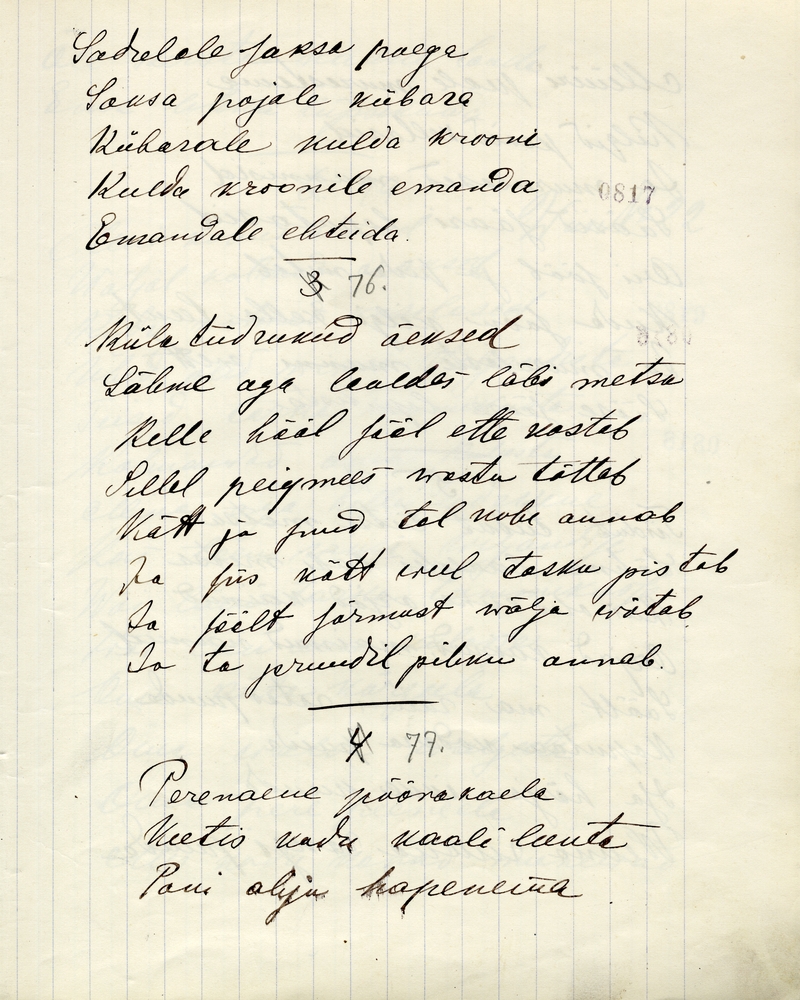 Sadulale saksa poega
Saksa pojale kübara
Kübarale kulda krooni
Kulda kroonile emanda
0817
Emandale ehteida.
3 76.
Küla tüdrukud äeksed
Lähme aga lauldes läbi metsa
Kelle hääl sääl ette kostab
Sellel peigmees wastu tõttab
Kätt ja suud tal kohe annab
Ja siis kätt weel tasku pistab
Ja säält sõrmust wälja wõtab
Ja ta pruudil pihku annab.
4 77.
Perenaene pöörakaela
Keetis kadu kaali leenta
Pani ahju hapenema